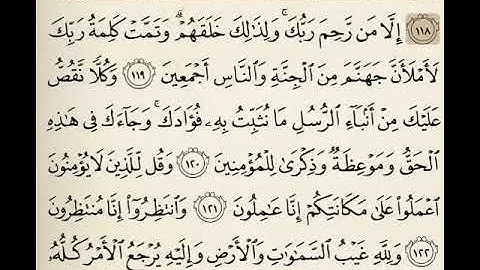 ١١٨ إِلَّا مَن رَّحِمَ رَبُّكَ ۚ وَلِذَٰلِكَ خَلَقَهُمْ ۗ وَتَمَّتْ كَلِمَةُ رَبِّكَ
لَأَمْلَأَنَّ جَهَنَّمَ مِنَ الْجِنَّةِ وَالنَّاسِ أَجْمَعِينَ ١١٩ وَكُلًّا نَّقُصُّ
عَلَيْكَ مِنْ أَنۢبَاءِ الرُّسُلِ مَا نُثَبِّتُ بِهِۦ فُؤَادَكَ ۚ وَجَاءَكَ فِى هَٰذِهِ
الْحَقُّ وَمَوْعِظَةٌ وَذِكْرَىٰ لِلْمُؤْمِنِينَ ١٢٠ وَقُل لِّلَّذِينَ لَا يُؤْمِنُونَ
اعْمَلُوا۟ عَلَىٰ مَكَانَتِكُمْ إِنَّا عَٰمِلُونَ ١٢١ وَانتَظِرُوٓا۟ إِنَّا مُنتَظِرُونَ
١٢٢ وَلِلَّهِ غَيْبُ السَّمَٰوَٰتِ وَالْأَرْضِ وَإِلَيْهِ يُرْجَعُ الْأَمْرُ كُلُّهُۥ